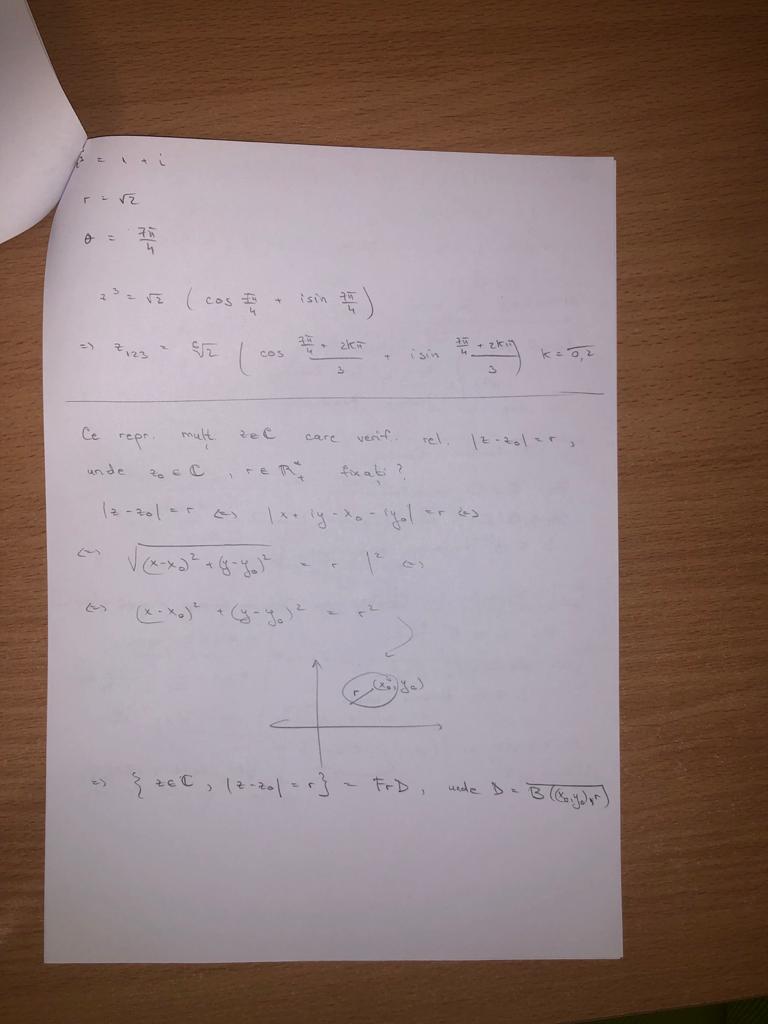 z³ = 1 + i
r = √2
θ = 7π/4
z³ = √2 ( cos 7π/4 + isin 7π/4 )
=> z₁₂₃ = ⁶√2 ( cos (7π/4 + 2kπ)/3 + isin (7π/4 + 2kπ)/3 ) k = 0,2
Ce repr. mulț. z∈ℂ care verif. rel. |z-z₀| = r,
unde z₀ ∈ ℂ, r ∈ ℝ₊* fixați?
|z-z₀| = r <=> |x+iy-x₀-iy₀| = r <=>
<=> √((x-x₀)² + (y-y₀)²) = r |² <=>
<=> (x-x₀)² + (y-y₀)² = r²
r (x₀, y₀)
=> { z∈ℂ, |z-z₀| = r } = FrD, unde D = B((x₀,y₀), r)